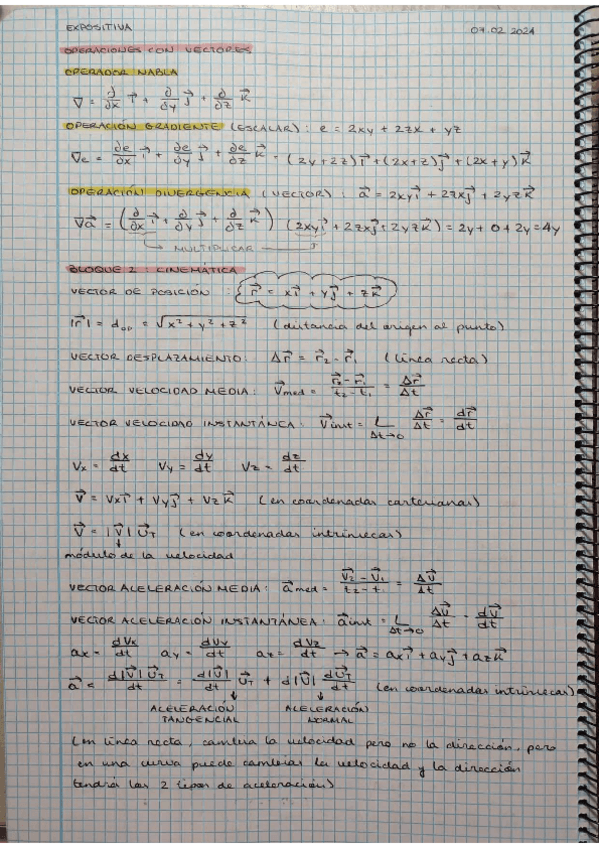 EXPOSITIVA 07.02 2024
OPERACIONES CON VECTORES
OPERADOR NABLA
∇ = ∂/∂x i⃗ + ∂/∂y j⃗ + ∂/∂z k⃗
OPERACIÓN GRADIENTE (ESCALAR) : e = 2xy + 2zx + yz
∇e = ∂e/∂x i⃗ + ∂e/∂y j⃗ + ∂e/∂z k⃗ = (2y+2z) i⃗ + (2x+z) j⃗ + (2x+y) k⃗
OPERACIÓN DIVERGENCIA (VECTOR) : a⃗ = 2xy i⃗ + 2zx j⃗ + 2yz k⃗
∇a⃗ = (∂/∂x i⃗ + ∂/∂y j⃗ + ∂/∂z k⃗) (2xy i⃗ + 2zx j⃗ + 2yz k⃗) = 2y + 0 + 2y = 4y
MULTIPLICAR
BLOQUE 2 CINEMÁTICA
VECTOR DE POSICIÓN : r⃗ = x i⃗ + y j⃗ + z k⃗
|r⃗| = d₀ₚ = √x² + y² + z² (distancia del origen al punto)
VECTOR DESPLAZAMIENTO: Δr⃗ = r⃗₂ - r⃗₁ (línea recta)
VECTOR VELOCIDAD MEDIA : V⃗med = r⃗₂ - r⃗₁ / t₂ - t₁ = Δr⃗/Δt
VECTOR VELOCIDAD INSTANTÁNCA : V⃗inst = L Δt→0 Δr⃗/Δt = dr⃗/dt
Vx = dx/dt Vy = dy/dt Vz = dz/dt
V⃗ = Vx i⃗ + Vy j⃗ + Vz k⃗ (en coordenadas cartesianas)
V⃗ = |V⃗| U⃗T (en coordenadas intrínsecas)
módulo de la velocidad
VECTOR ACELERACIÓN MEDIA : a⃗med = V⃗₂ - V⃗₁ / t₂ - t₁ = ΔV⃗/Δt
VECTOR ACELERACIÓN INSTANTÁNEA : a⃗inst = L Δt→0 ΔV⃗/Δt = dV⃗/dt
ax = dVx/dt ay = dVy/dt az = dVz/dt → a⃗ = ax i⃗ + ay j⃗ + az k⃗
a⃗ = d|V⃗| U⃗T/dt = d|V⃗|/dt U⃗T + d|V⃗| dU⃗T/dt (en coordenadas intrínsecas)
ACELERACIÓN TANGENCIAL ACELERACIÓN NORMAL
(en línea recta, cambia la velocidad pero no la dirección, pero
en una curva puede cambiar la velocidad y la dirección
tendrá las 2 tipos de aceleración)